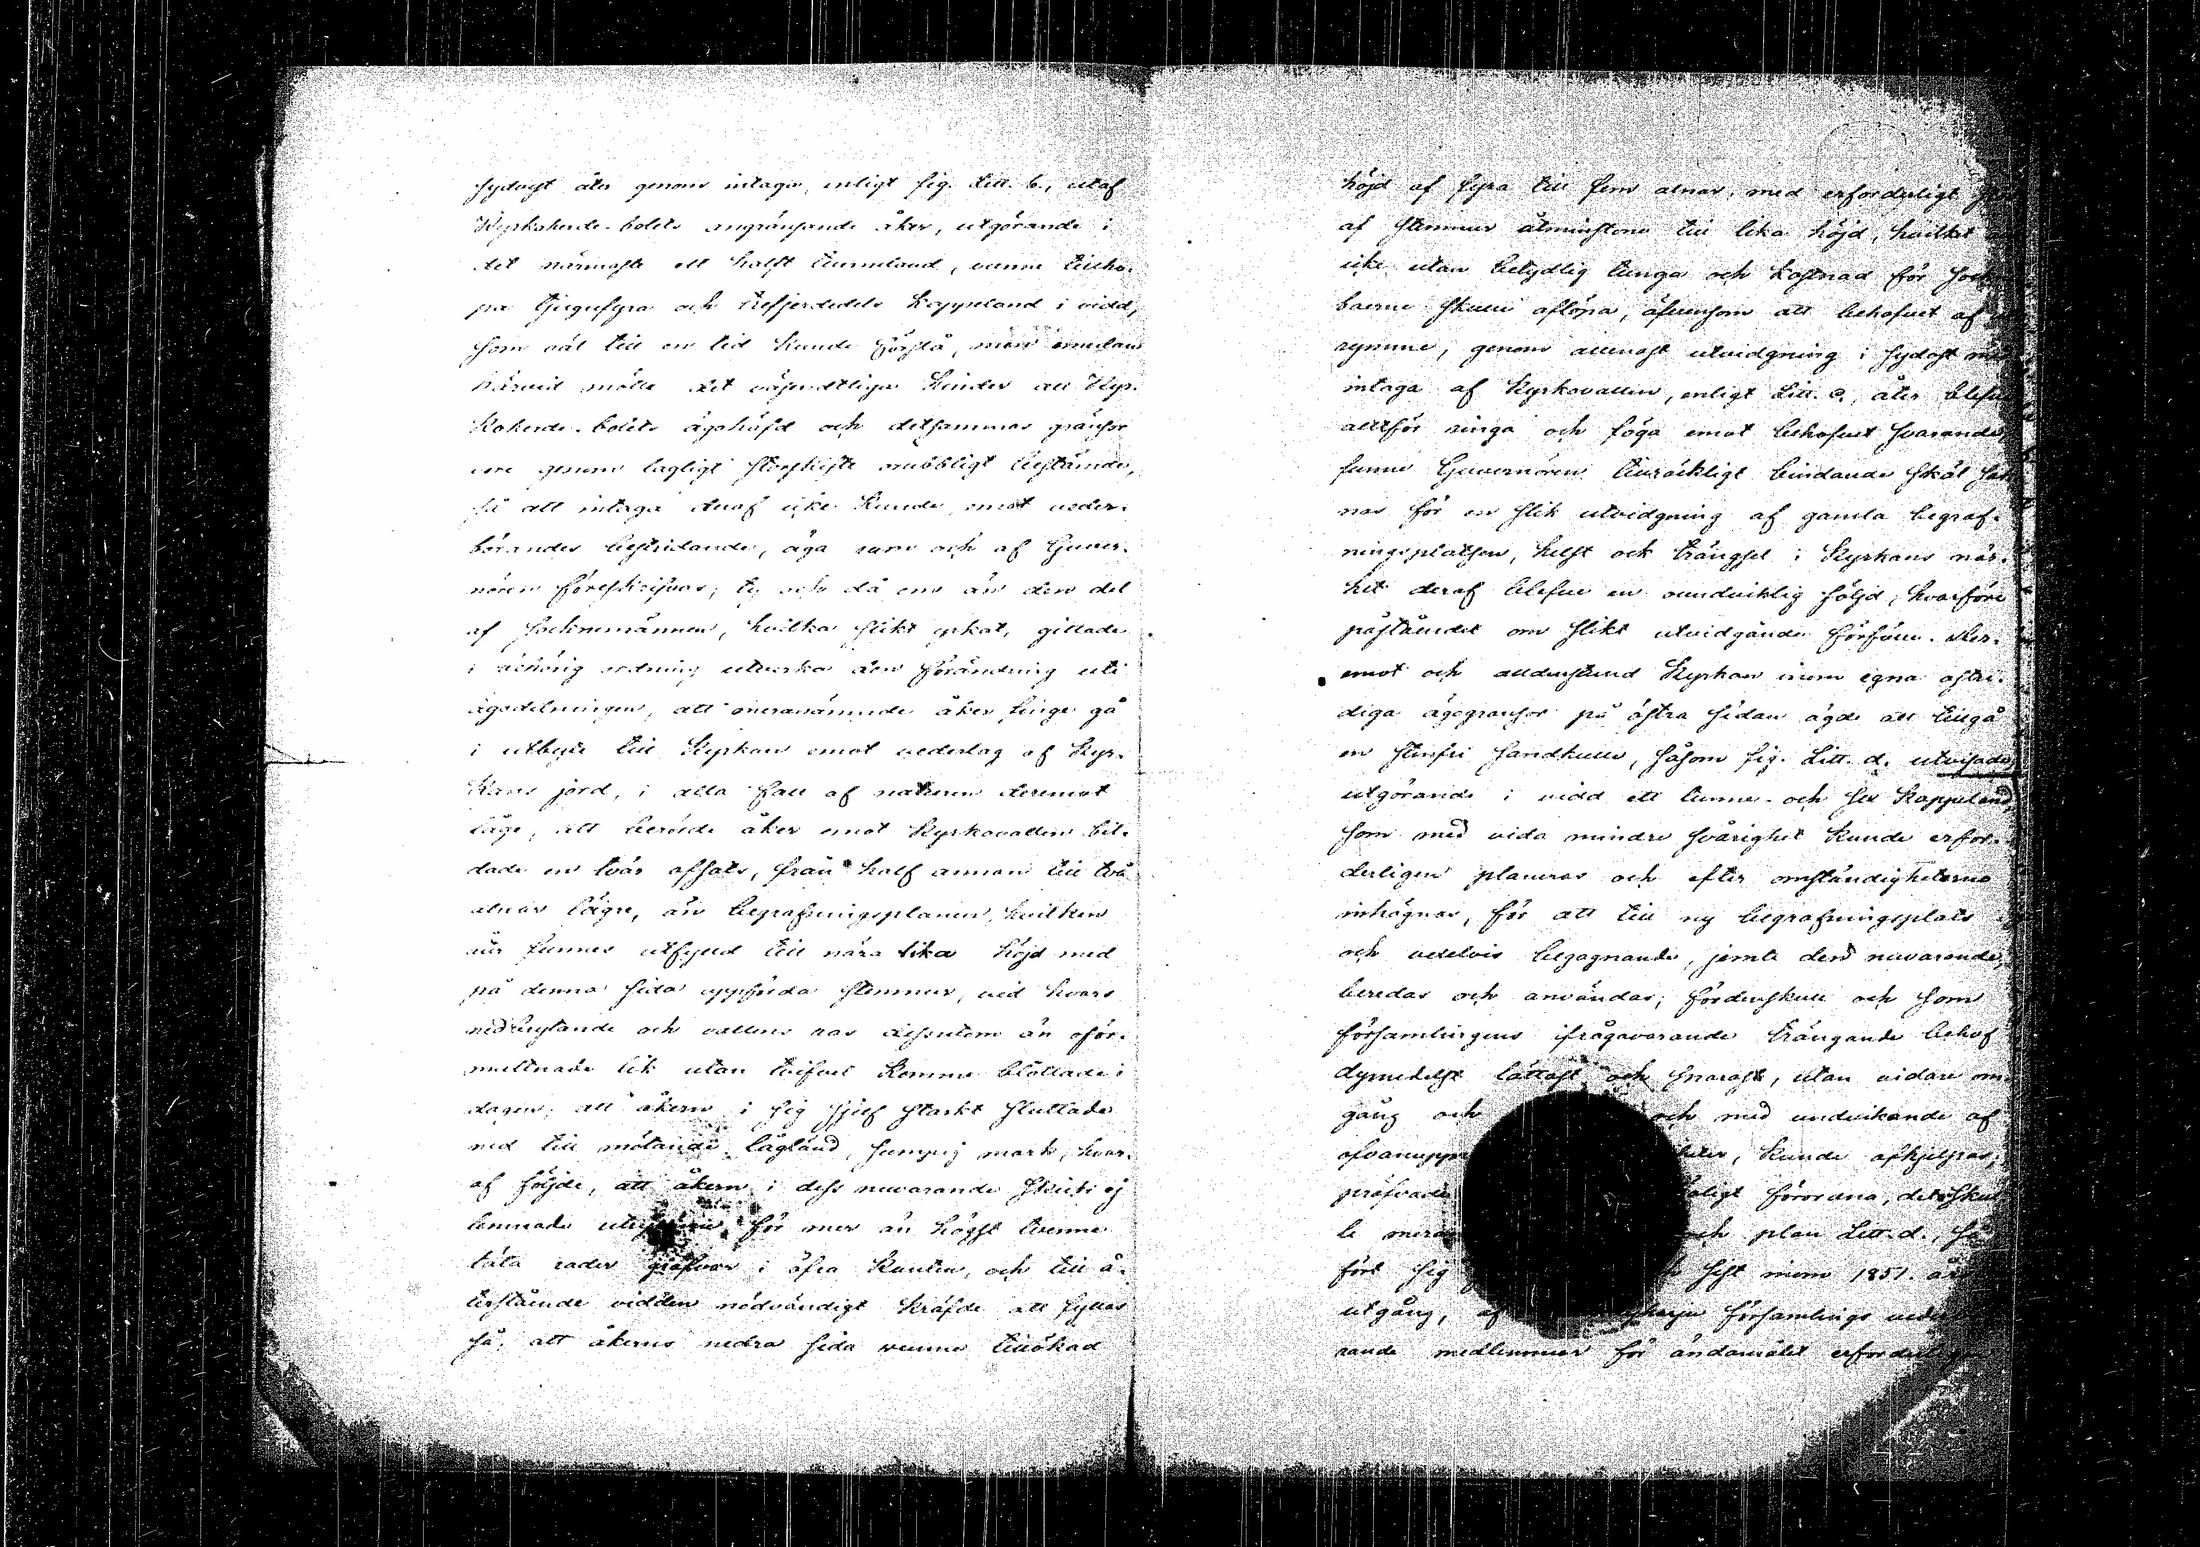 sydost åter genom intaga, enligt fig. Litt. b., utaf
Kyrkoherde-bolets angränsande åker, utgörande i
det närmaste ett halft tunnland, vunne tillho-
pa tjugufyra och trefjerdedels kappeland i vidd,
som väl till en tid kunde förslå, men emedan
härvid mötte det väsendtliga hinder att Kyr-
koherde-bolets ägohäfd och detsammas gränsor
vore genom lagligt storskifte orubbligt bestämde,
så att intaga deraf icke kunde, emot veder-
börandes bestridande, äga rum och af Guver-
nören föreskrifvas; ty och då om än den del
af Socknemännen, hvilka slikt yrkat, gittade
i behörig ordning utverka den förändring uti
ägodelningen, att meranämnde åker finge gå
i utbyte till Kyrkan emot vederlag af Kyr-
kans jord, i alla fall af naturen deremot
låge, att berörde åker emot Kyrkovallen bil-
dade en tvär afsats, från half annan till två
alnar lägre, än begrafningsplanen, hvilken
är funnes utfylld till nära lika höjd med
på denna sida uppförda stenmur, vid hvars
nedbrytande och vallens ras dessutom än oför-
multnade lik utan tvifvel komme blottade i
dagen; att åkern i sig sjelf starkt sluttade
ned till mötande lågländ, sumpig mark, hvar-
af följde, att åkern i dess nuvarande skick ej
lemnade för mer än högst tvenne
täta rader grafvar i öfra kanten, och till å-
terstående vidden nödvändigt kräfde att fyllas
så, att åkerns nedra sida vunne tillökad
höjd af fyra till fem alnar, med erforderligt
af stenmur åtminstone till lika höjd, hvilket
icke utan betydlig tunga och kostnad för Sock-
boerne skulle aflöpa, äfvensom att behofvet af
rymme, genom allenast utvidgning i sydost med
intaga af Kyrkovallen, enligt Litt. c., åter blefve
alltför ringa och föga emot behofvet svarande,
funne Guvernören tillräckligt bindande skäl sak-
nas för en slik utvidgning af gamla begraf-
ningsplatsen, helst ock trängsel i Kyrkans när-
het deraf blefve en oundviklig följd, hvarföre
påståendet om slikt utvidgande förfölle. Der-
emot och alldenstund Kyrkan inom egna ostri-
diga ägogränsor på östra sidan ägde att tillgå
en stenfri sandkulle, såsom fig. Litt. d. utvisade,
utgörande i vidd ett tunne- och sex kappeland,
som med vida mindre svårighet kunde erfor-
derligen planeras och efter omständigheterna
inhägnas, för att till ny begrafningsplats
och vexelvis begagnande, jemte den nuvarande,
beredas och användas; fördenskull och som
församlingens ifrågavarande trängande behof
dymedelst lättast och snarast, utan vidare om-
gång och och med undvikande af
ofvanuppn heter, kunde afhjelpas,
pröfvade förordna, det skul-
le mera och plan Litt. d., så
fört sig sist inom 1851. års
utgång, af församlings veder
rande medlemmar för ändamålet erforderligen